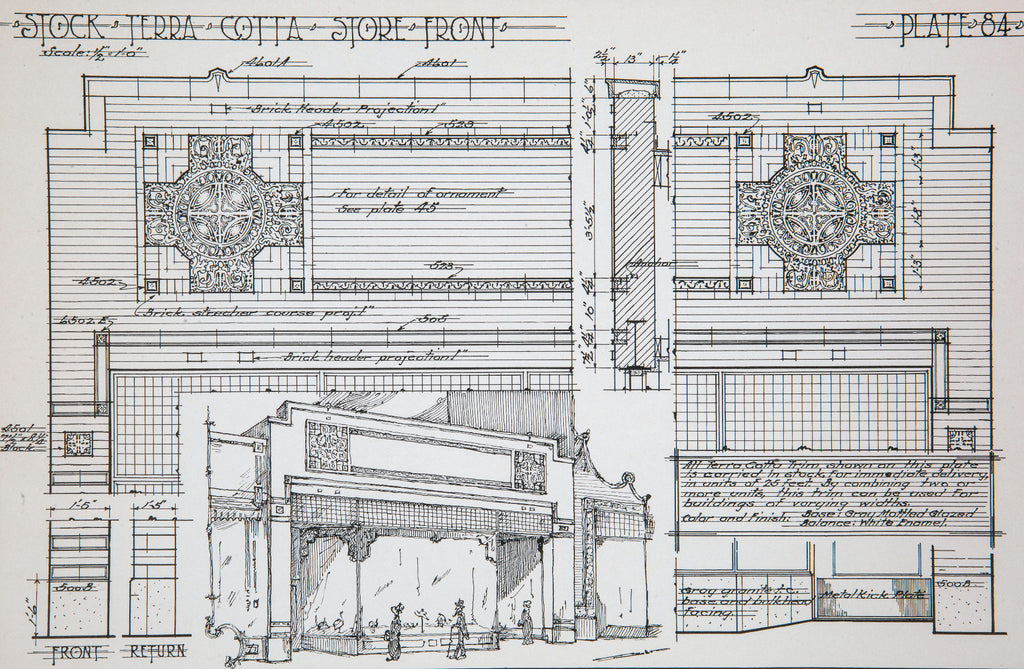 STOCK TERRA COTTA STORE FRONT
PLATE 84
Scale: 1/2"=1'-0"
4601A
4601
2 1/2" 13" 1 1/2"
Brick Header Projection 1"
4502
523
4502
For detail of ornament
See plate 45
1'-3"
1'-2"
1'-3"
6"
4 1/2"
3'-5 1/2"
4 1/2"
10"
Anchor
523
4502
Brick strecher course proj. 1"
6502 E
505
Brick header projection 1"
4501
Block
All Terra Cotta Trim shown on this plate
is carried in stock, for immediate delivery,
in units of 25 feet. By combining two or
more units, this trim can be used for
buildings of varying widths.
Color and Finish: Base: Gray Mottled Glazed
Balance: White Enamel.
1'-6"
1'-5"
500B
1'-6"
FRONT
RETURN
Gray granite t.c.
base and bulkhead
facing.
Metal Kick Plate
500B